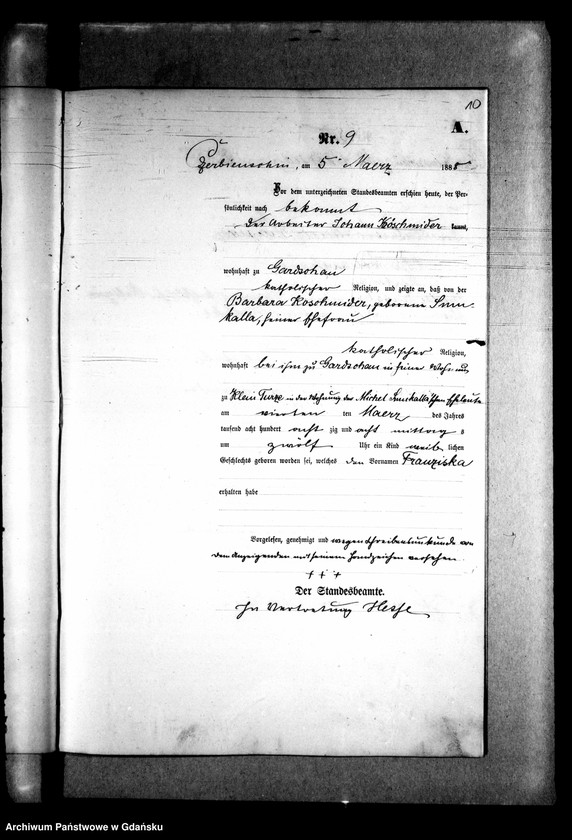 10
A.
Nr. 9
am 5 Maerz 1888
Vor dem unterzeichneten Standesbeamten erschien heute, der Per-
sönlichkeit nach bekannt
der Arbeiter Johann Koschmider kannt,
wohnhaft zu Gardschau
katholischer Religion, und zeigte an, daß von der
Barbara Koschmider, geborene Smu-
kalla, seiner Ehefrau
katholischer Religion,
wohnhaft bei ihm zu Gardschau in seiner
zu Klein Turze in der Wohnung der Michel Smukalla'schen Eheleute
am vierten ten Maerz des Jahres
tausend acht hundert acht zig und acht mittags
um zwölf Uhr ein Kind weib lichen
Geschlechts geboren worden sei, welches den Vornamen Franziska
erhalten habe
Vorgelesen, genehmigt und wegen Schreibensunkunde von
dem Anzeigenden mit seinem Handzeichen versehen
+ + +
Der Standesbeamte.
In Vertretung Hesse
Archiwum Państwowe w Gdańsku